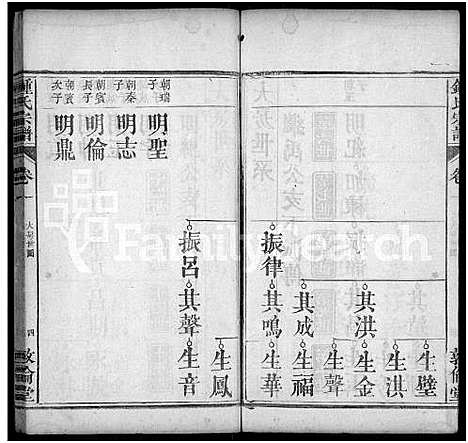 鍾氏宗譜
卷一
敦倫堂
生璧
生洪
其洪
生金
生聲
其成
生福
振律
其鳴
生華
生鳳
振呂
其聲
生音
朝瑞子
明聖
朝秦子
明志
朝賓長子
明倫
朝賓次子
明鼎
鍾氏宗譜
卷一
大房世圖
四
敦倫堂
FamilySearch